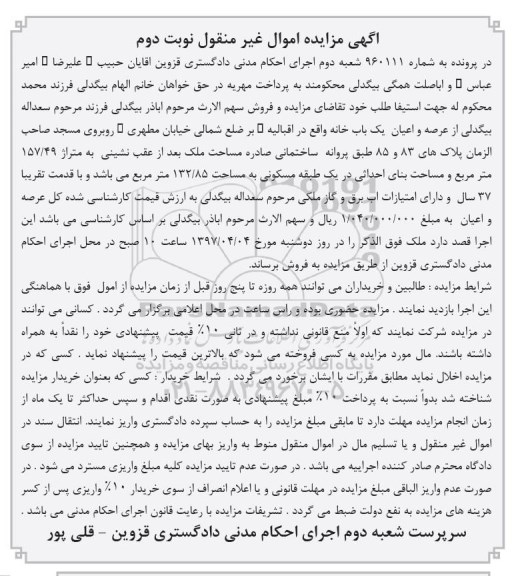 آگهی مزایده اموال غیر منقول نوبت دوم
در پرونده به شماره ۹۶۰۱۱۱ شعبه دوم اجرای احکام مدنی دادگستری قزوین اقایان حبیب علیرضا امیر
عباس و اباصلت همگی بیگدلی محکومند به پرداخت مهریه در حق خواهان خانم الهام بیگدلی فرزند محمد
محکوم له جهت استیفا طلب خود تقاضای مزایده و فروش سهم الارث مرحوم اباذر بیگدلی فرزند مرحوم سعداله
بیگدلی از عرصه و اعیان یک باب خانه واقع در اقبالیه بر ضلع شمالی خیابان مطهری روبروی مسجد صاحب
الزمان پلاک های ۸۳ و ۸۵ طبق پروانه ساختمانی صادره مساحت ملک بعد از عقب نشینی به متراژ ۱۵۷/۴۹
متر مربع و مساحت بنای احداثی در یک طبقه مسکونی به مساحت ۱۳۲/۸۵ متر مربع می باشد و با قدمت تقریبا
۳۷ سال و دارای امتیازات اب برق و گاز ملکی مرحوم سعداله بیگدلی به ارزش قیمت کارشناسی شده کل عرصه
و اعیان به مبلغ ۱/۰۴۰/۰۰۰/۰۰۰ ریال و سهم الارث مرحوم اباذر بیگدلی بر اساس کارشناسی می باشد این
اجرا قصد دارد ملک فوق الذکر را در روز دوشنبه مورخ ۱۳۹۷/۰۴/۰۴ ساعت ۱۰ صبح در محل اجرای احکام
مدنی دادگستری قزوین از طریق مزایده به فروش برساند.
شرایط مزایده : طالبین و خریداران می توانند همه روزه تا پنج روز قبل از زمان مزایده از امول فوق با هماهنگی
این اجرا بازدید نمایند . مزایده حضوری بوده و راس ساعت در محل اعلامی برگزار می گردد . کسانی می توانند
در مزایده شرکت نمایند که اولاً منع قانونی نداشته و در ثانی ۱۰٪ قیمت پیشنهادی خود را نقداً به همراه
داشته باشند. مال مورد مزایده به کسی فروخته می شود که بالاترین قیمت را پیشنهاد نماید . کسی که در
مزایده اخلال نماید مطابق مقررات با ایشان برخورد می گردد . شرایط خریدار : کسی که بعنوان خریدار مزایده
شناخته شد بدواً نسبت به پرداخت ۱۰٪ مبلغ پیشنهادی به صورت نقدی اقدام و سپس حداکثر تا یک ماه از
زمان انجام مزایده مهلت دارد تا مابقی مبلغ مزایده را به حساب سپرده دادگستری واریز نمایند. انتقال سند در
اموال غیر منقول و یا تسلیم مال در اموال منقول منوط به واریز بهای مزایده و همچنین تایید مزایده از سوی
دادگاه محترم صادر کننده اجراییه می باشد . در صورت عدم تایید مزایده کلیه مبلغ واریزی مسترد می شود . در
صورت عدم واریز الباقی مبلغ مزایده در مهلت قانونی و یا اعلام انصراف از سوی خریدار ۱۰٪ واریزی پس از کسر
هزینه های مزایده به نفع دولت ضبط می گردد . تشریفات مزایده با رعایت قانون اجرای احکام مدنی می باشد .
سرپرست شعبه دوم اجرای احکام مدنی دادگستری قزوین – قلی پور